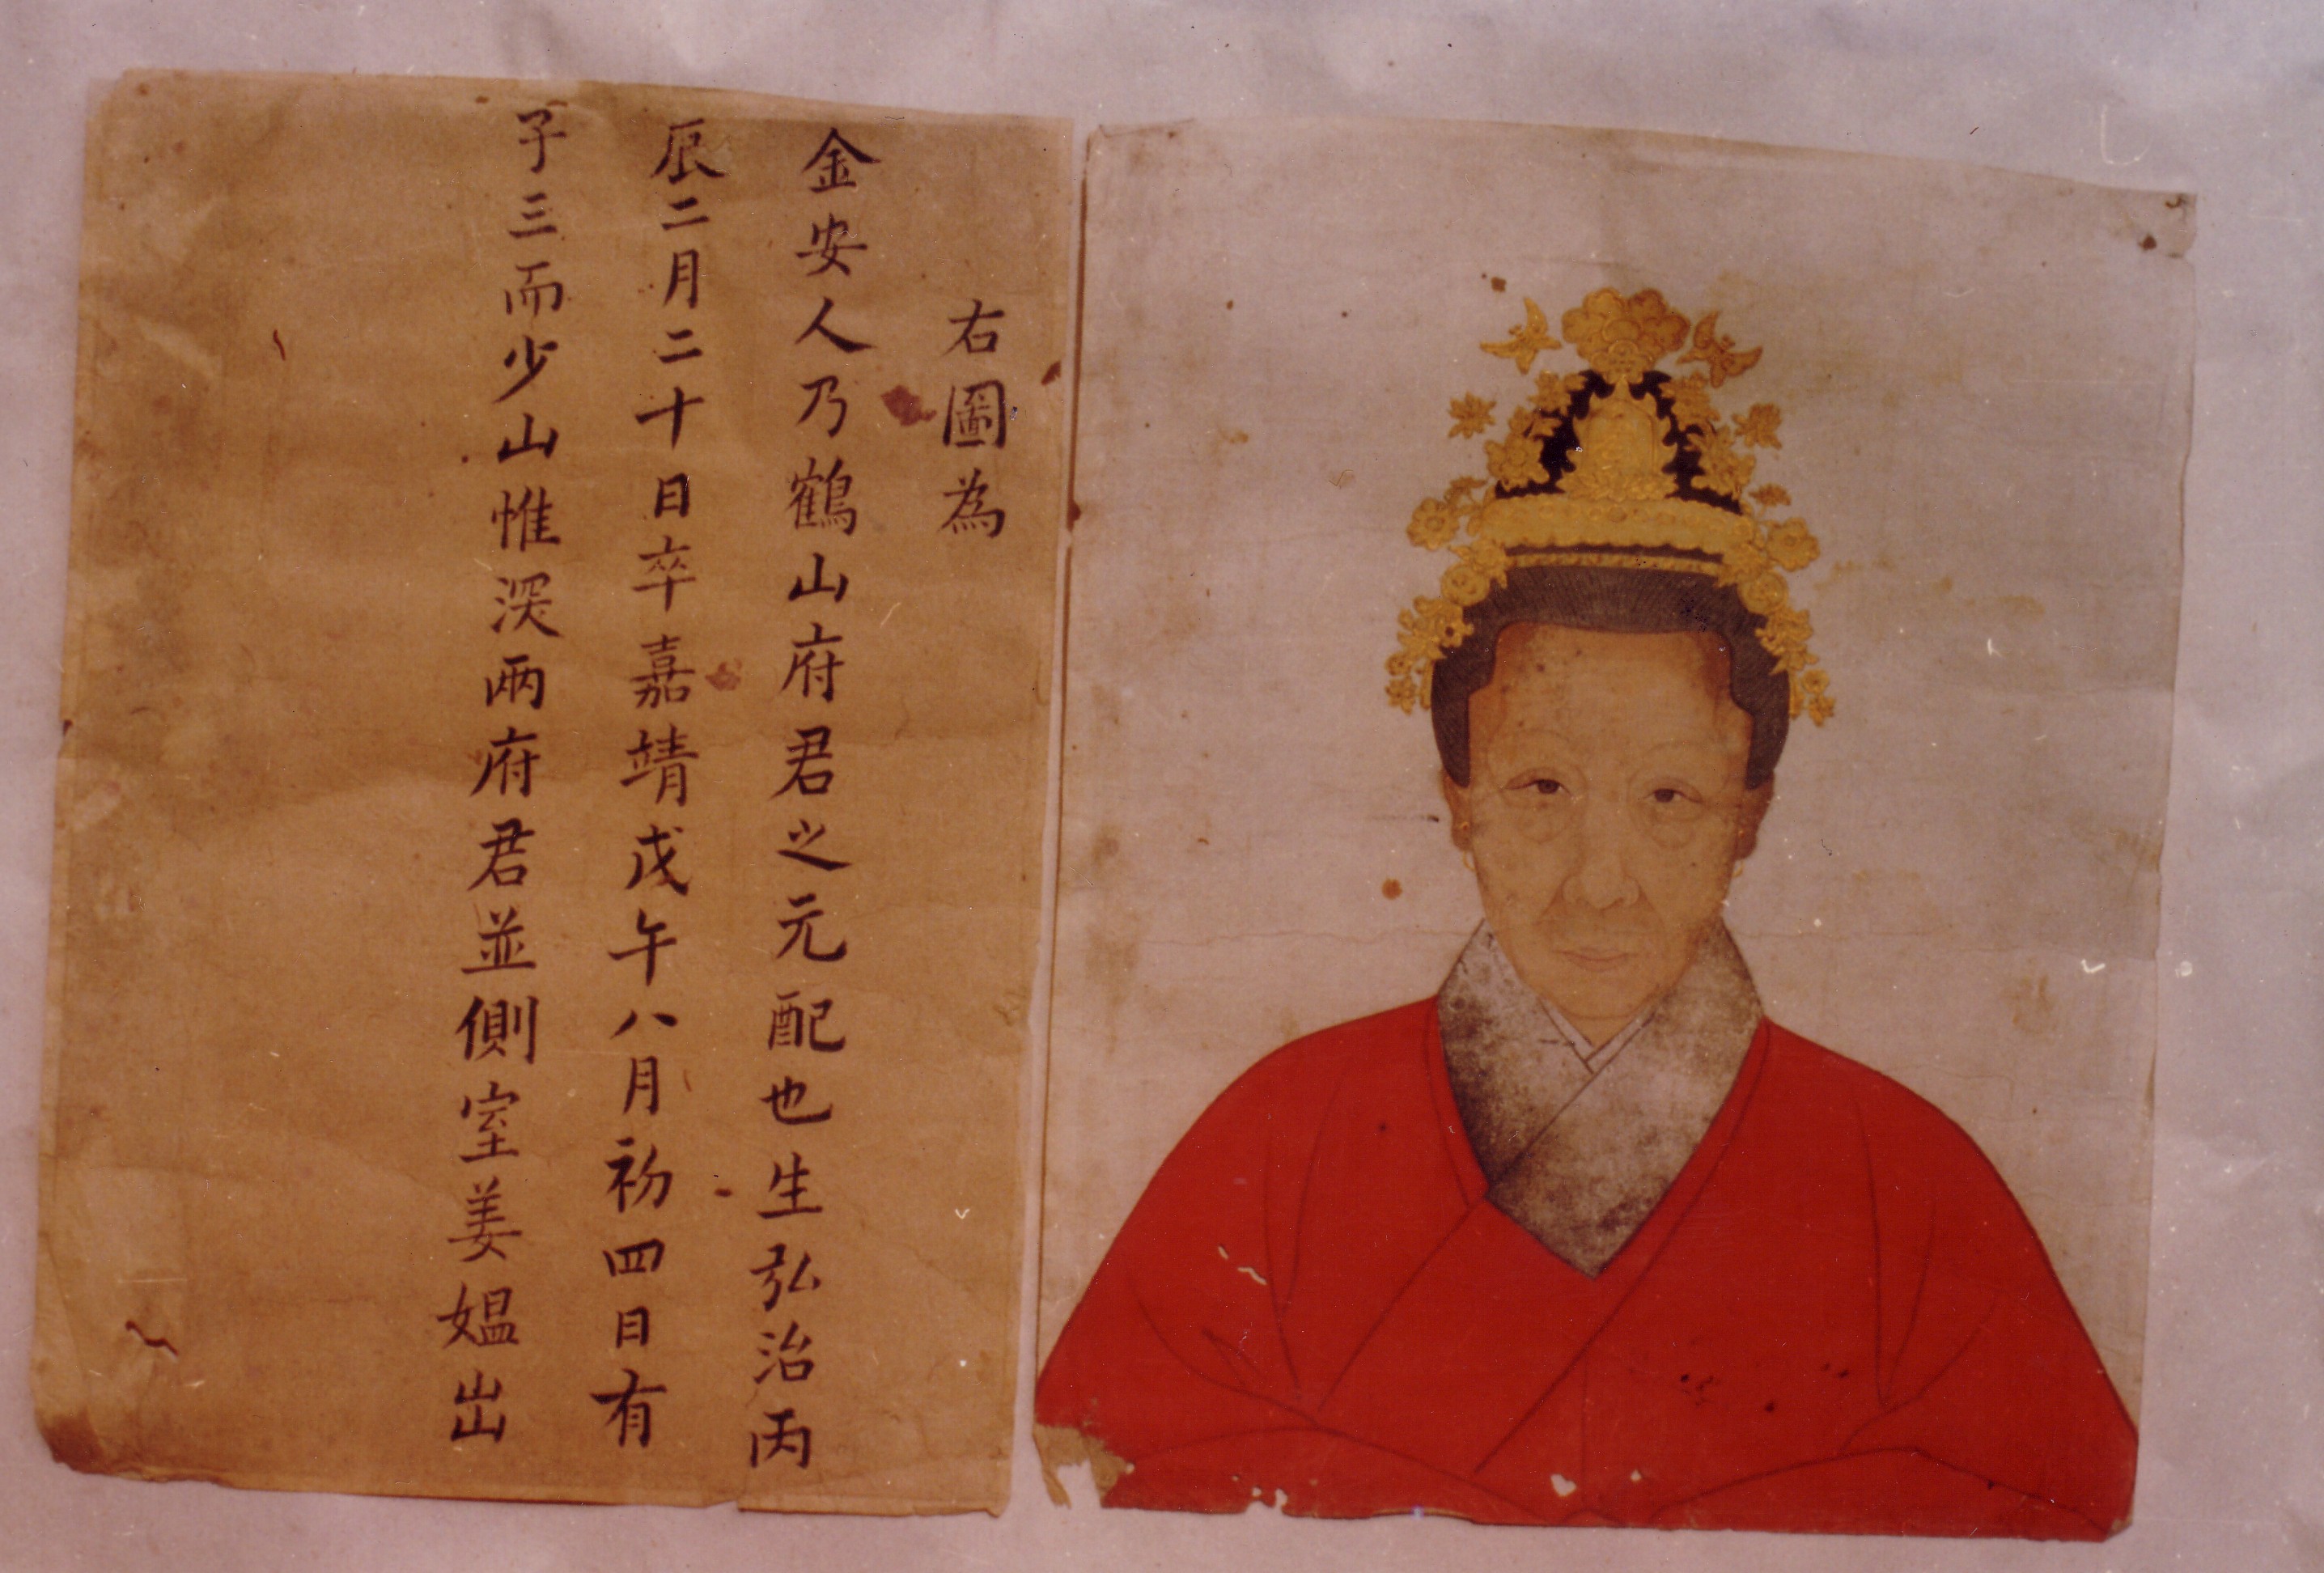 右圖為
金安人乃鶴山府君之元配也生弘治丙
辰二月二十日卒嘉靖戊午八月初四日有
子三而少山惟深兩府君並側室姜媪出